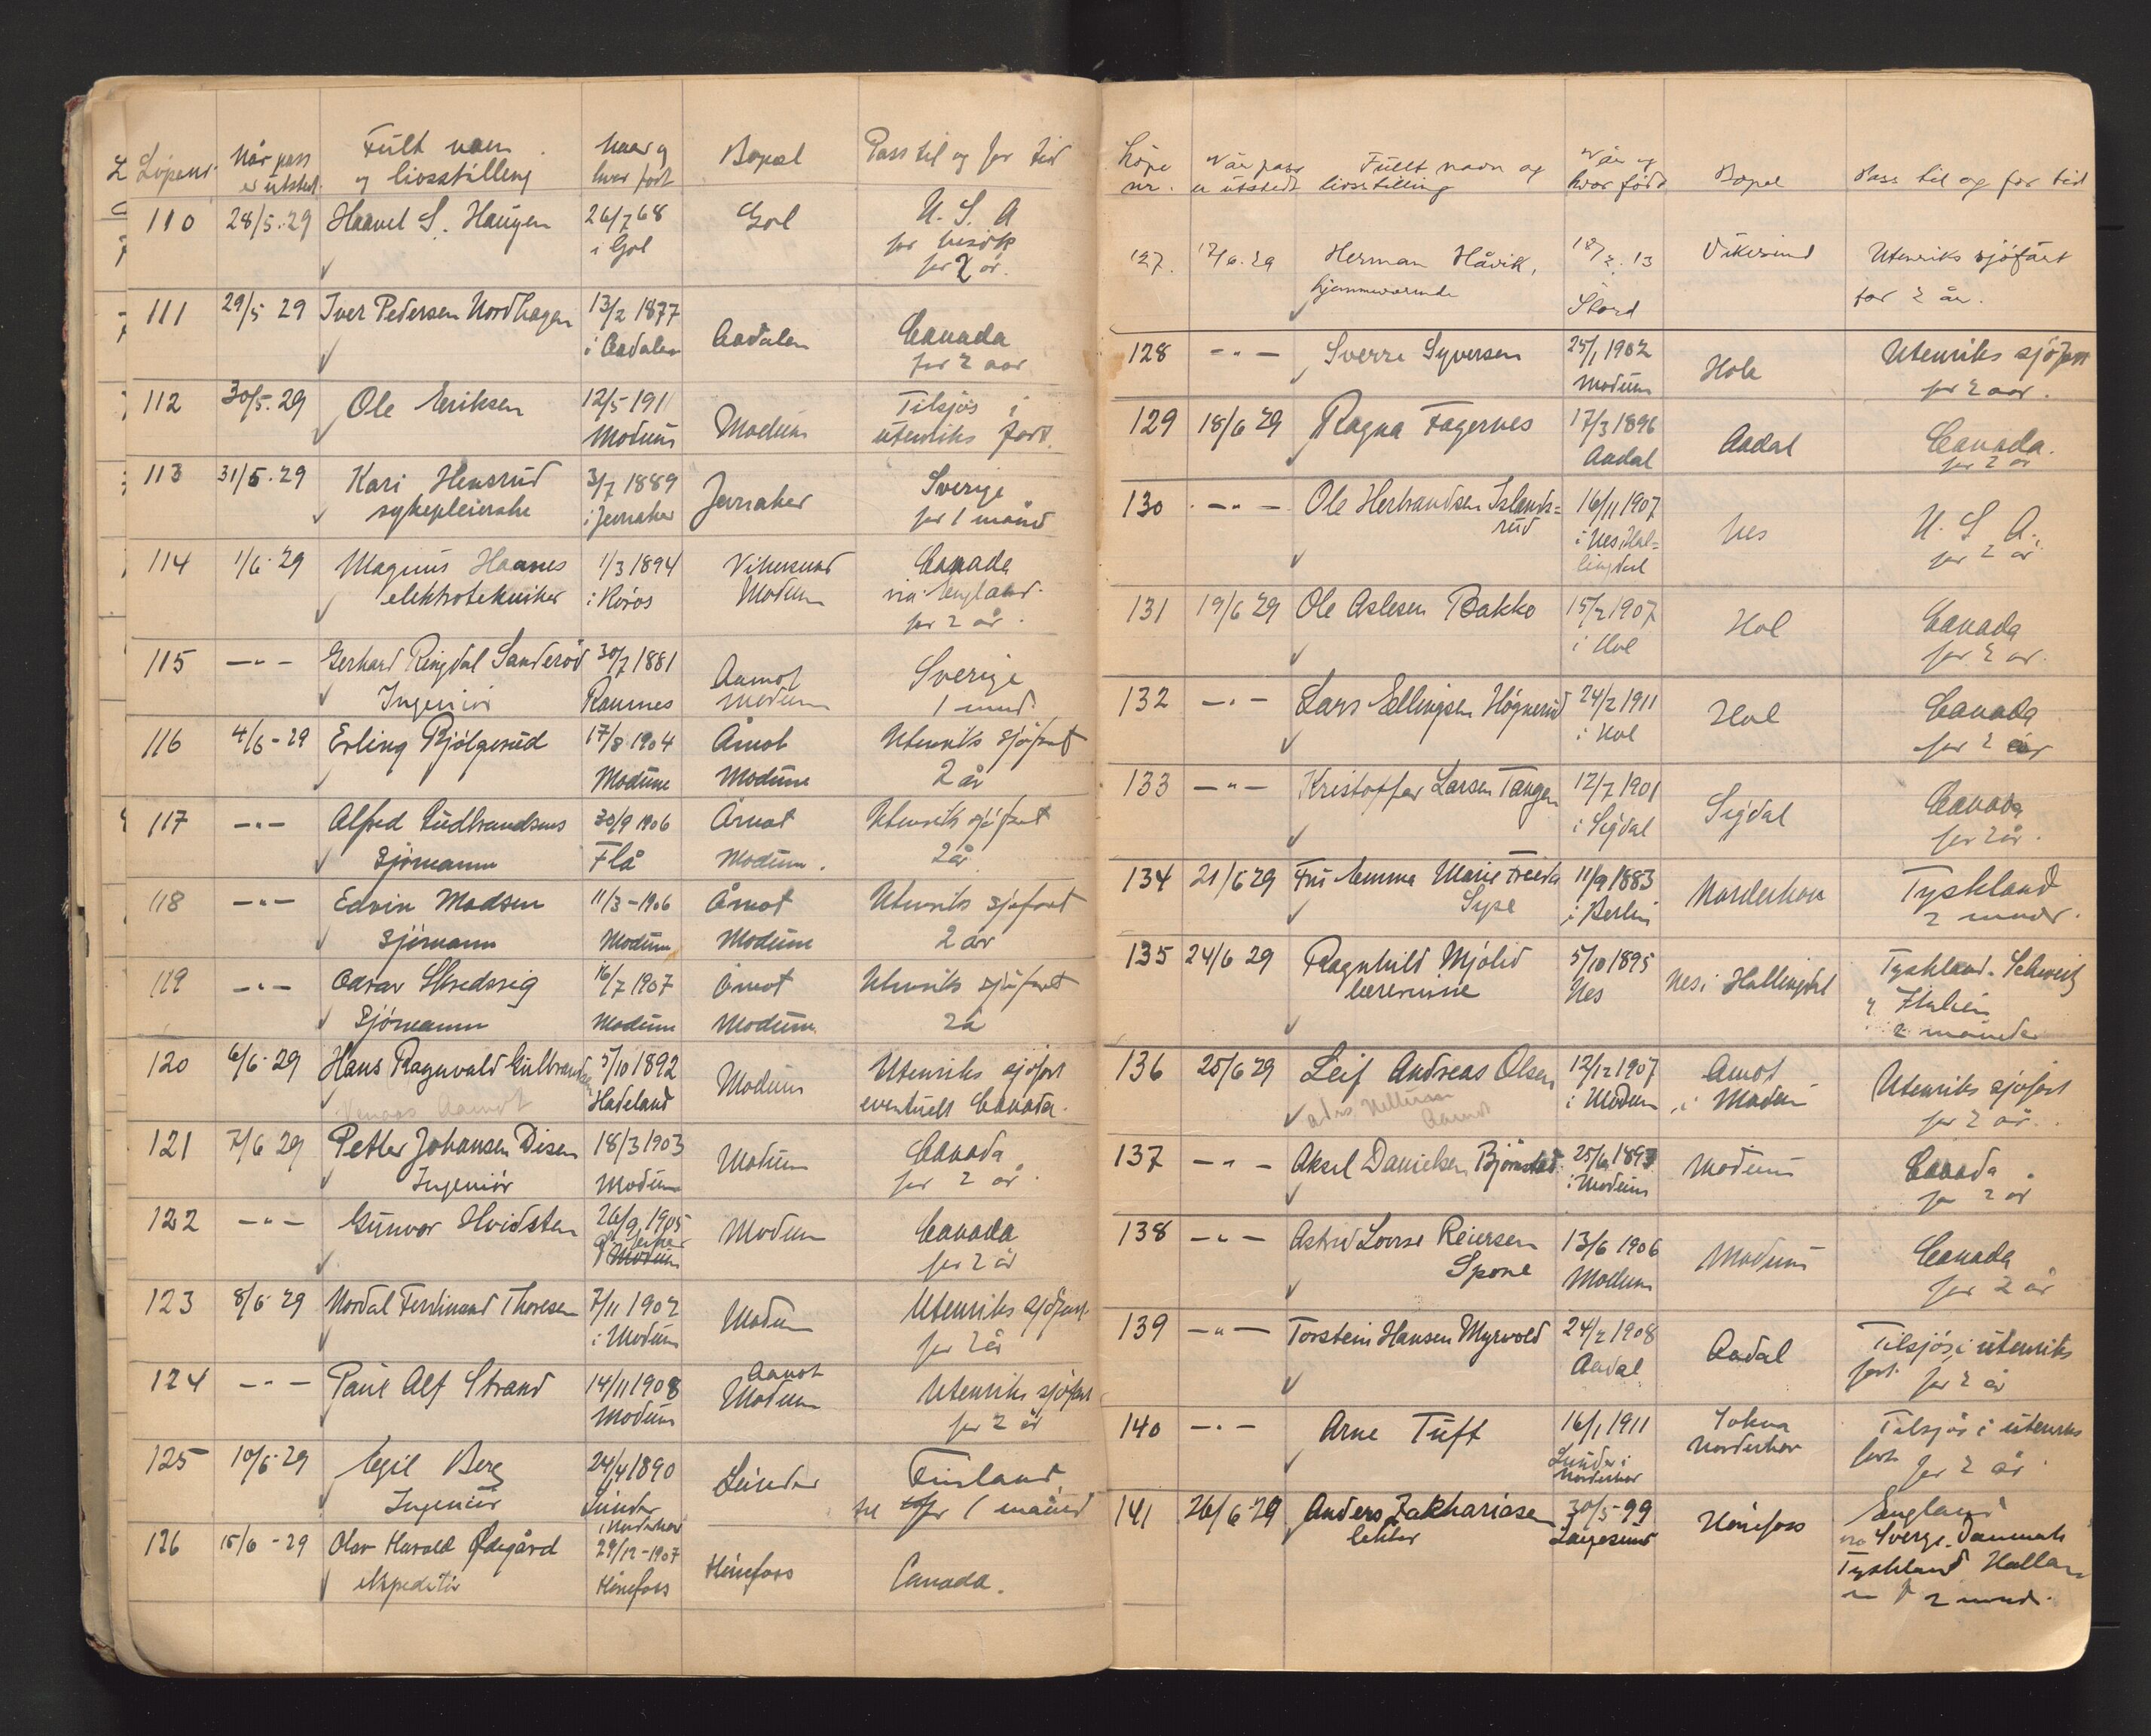 Løpenr. Når pass er utstedt. Fullt navn og livsstilling Naar og hvor født Bopæl Pass til og for tid
110 28/5.29 Haavel S. Haugen 26/7 68 i Gol Gol U.S.A for besøk for 2 år.
111 29/5 29 Iver Pedersen Nordhagen 13/2 1877 i Aadalen Aadalen Canada for 2 aar
112 30/5.29 Ole Eriksen 12/5 1911 Modum Modum Tilsjøs i utenriks fart.
113 31/5.29 Kari Hensrud sykepleierske 3/7 1889 i Jevnaker Jevnaker Sverige for 1 måned
114 1/6.29 Magnus Haanes elektrotekniker 1/3 1894 i Røros Vikersund Modum Canada via England. for 2 år.
115 -"- Gerhard Ringdal Sanderød Ingeniør 30/7 1881 Raumnes Aamot Modum Sverige 1 mnd.
116 4/6-29 Erling Bjølgerud 17/8 1904 Modum Åmot Modum Utenriks sjøfart 2 år
117 -"- Alfred Gudbrandsens Sjømann 30/9 1906 Flå Åmot Modum. Utenriks sjøfart 2 år
118 -"- Edvin Madsen Sjømann 11/3-1906 Modum Åmot Modum Utenriks sjøfart 2 år
119 -"- Oddvar Skredsvig Sjømann 16/7 1907 Modum Åmot Modum. Utenriks sjøfart 2 å
120 6/6.29 Hans Ragnvald Gulbrandsen 5/10 1892 Hadeland Modum Utenriks sjøfart eventuelt Canada.
Aamot
121 7/6 29 Petter Johansen Disen Ingeniør 18/3 1903 Modum Modum Canada for 2 år.
122 -"- Gunvor Hvidsten 26/9 1905 Modum Modum Canada for 2 år
123 8/6 29 Nordal Ferdinand Thoresen 7/11 1902 i Modum Modum Utenriks sjøfart for 2 år
124 -"- Paul Alf Strand 14/11 1908 Modum Aamot Modum Utenriks sjøfart for 2 år
125 10/6.29 Egil Berg Ingeniør 24/4 1890 Lunder i Norderhov Lunder Finland for 1 måned
126 15/6-29 Olav Harald Ødegård ekspeditør 29/12-1907 Hønefoss Hønefoss Canada.
Løpe nr. Når pass er utstedt Fullt navn og livsstilling Når og hvor født Bopel Pass til og for tid
127. 17/6.29 Herman Håvik, hjemmeværende 18/2.13 Stord Vikersund Utenriks sjøfart for 2 år.
128 -"- Sverre Syversen 25/1 1902 Modum Hole Utenriks sjøfart for 2 aar.
129 18/6 29 Ragna Fagernes 17/3 1896 Aadal Aadal Canada. for 2 år
130 -"- Ole Herbrandsen Islands=rud 16/11 1907 i Nes Hal=lingdal Nes U.S.A. for 2 år
131 19/6 29 Ole Aslesen Bakko 15/2 1907 i Hol Hol Canada for 2 år.
132 -"- Lars Ellingsen Høgnerud 24/2 1911 i Hol Hol Canada for 2 år
133 -"- Kristoffer Larsen Tangen 12/7 1901 i Sigdal Sigdal Canada for 2 år.
134 21/6 29 Fru Emma Marie Frieda Sype 11/9 1883 i Berlin Norderhov Tyskland 2 mndr.
135 24/6 29 Ragnhild Mjølid lærerinne 5/10 1895 Nes Nes i Hallingdal Tyskland. Schweitz og Italien 2 måneder
136 25/6 29 Leif Andreas Olsen 12/12 1907 i Modum Åmot i Modum Utenriks sjøfart for 2 år.
Aamot
137 -"- Aksel Danielsen Bjørnstad 25/6 1893 i Modum Modum Canada for 2 år
138 -"- Astrid Lovise Reiersen Spone 13/6 1906 Modum Modum Canada for 2 år
139 -"- Torstein Hansen Myrvold 24/2 1908 Aadal Aadal Tilsjøs i utenriks fart. for 2 år
140 -"- Arne Tuft 16/1 1911 Lunder i Norderhov Sokna Norderhov Tilsjøs i utenriks fart for 2 år
141 26/6-29 Anders Zakhariasen lektor 30/5-99 Langesund Hønefoss England via Sverge. Danmark Tyskland Holland 2 mndr.